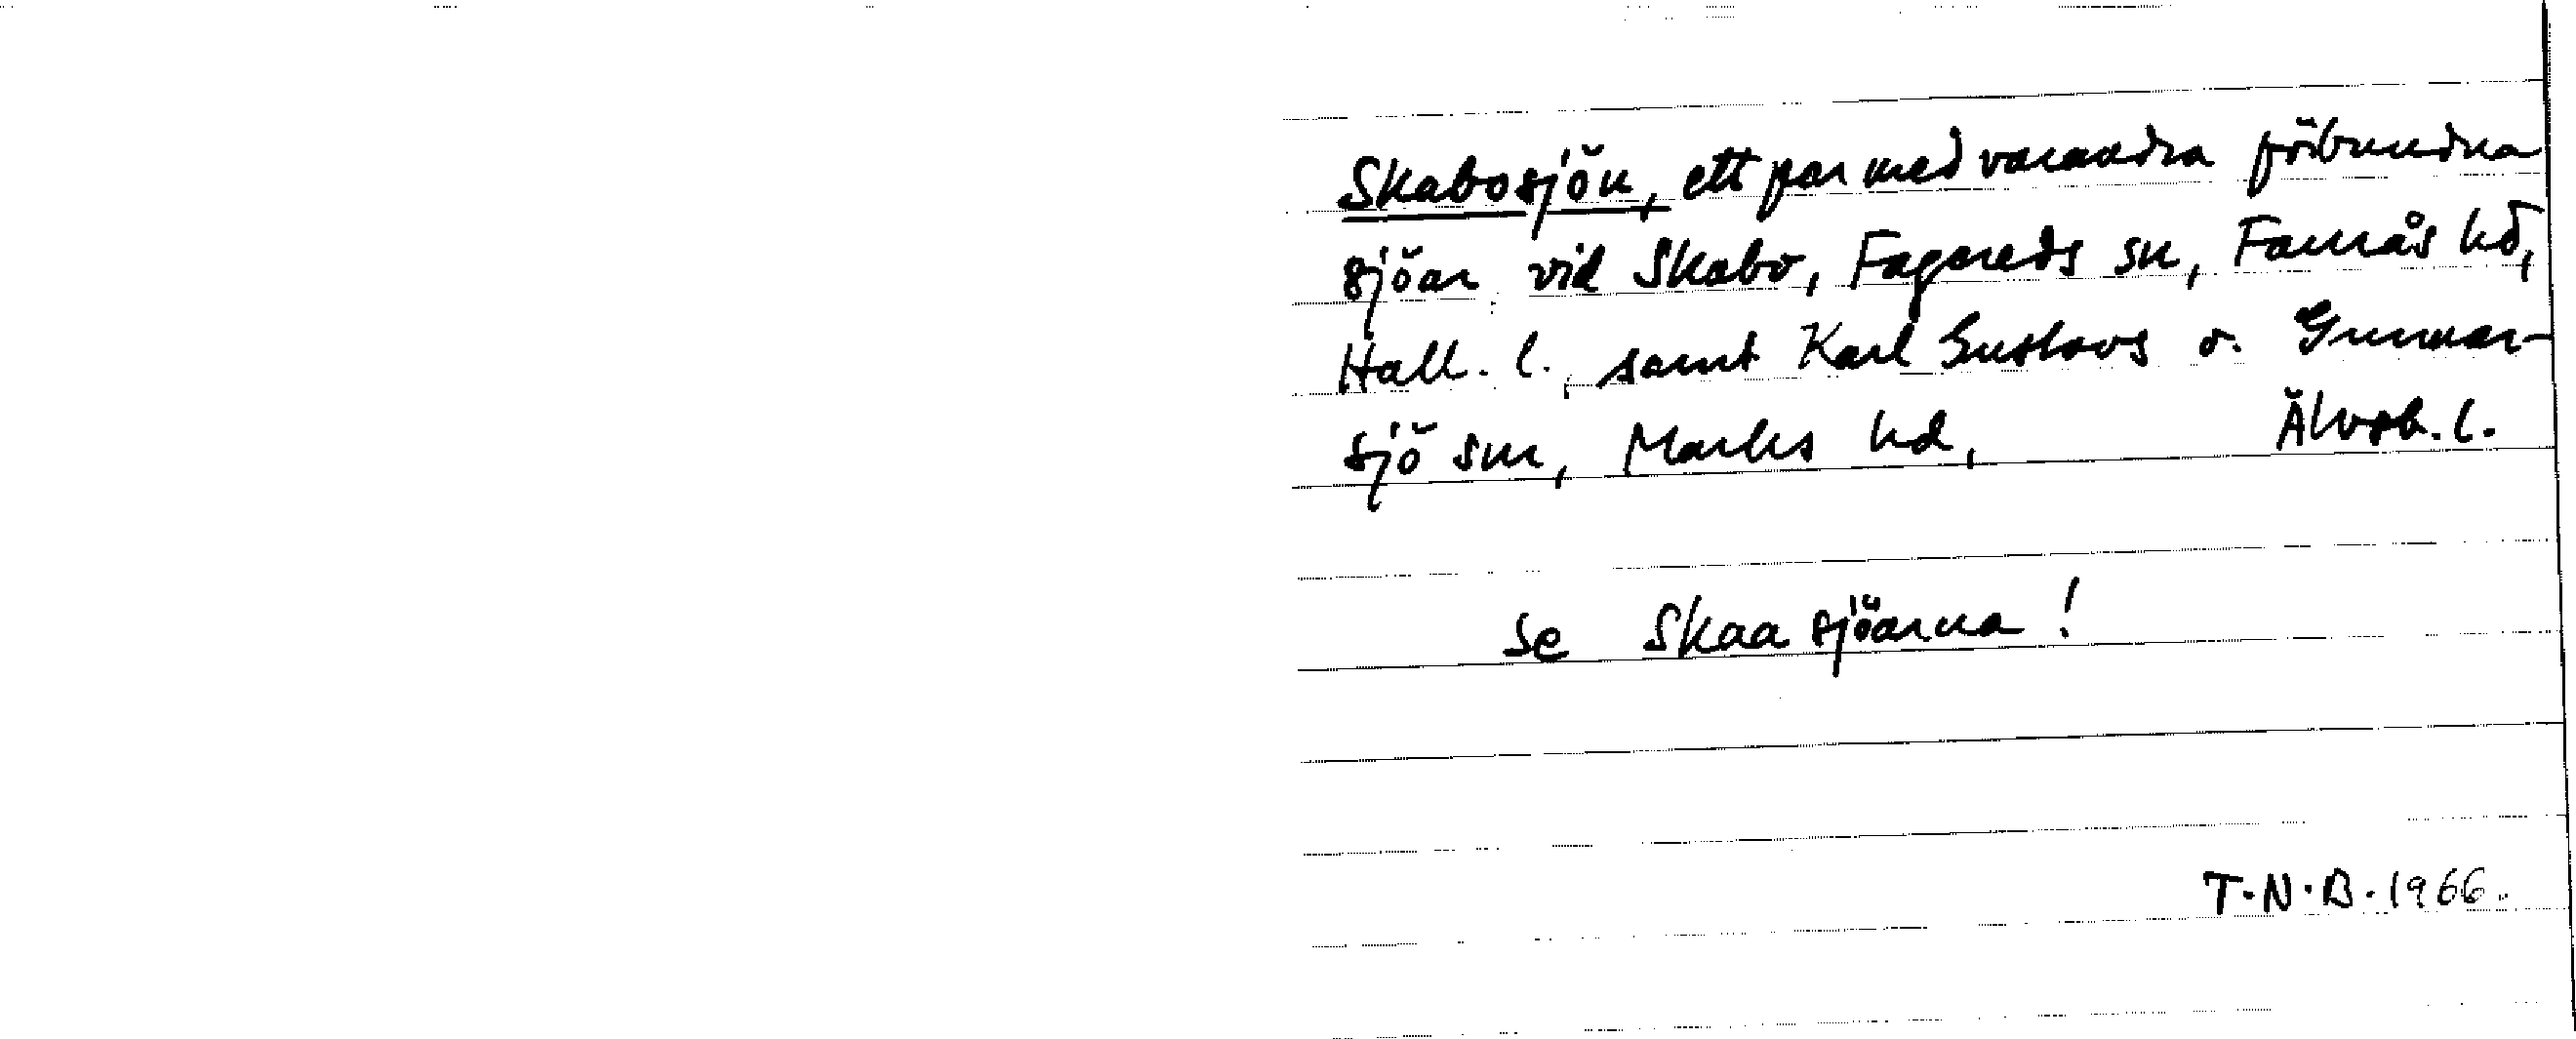 Skabosjön, ett par med varandra förbundna
sjöar vid Skabo, Fagereds sn, Faurås hd,
Hall. l., samt Karl Gustavs o. Gunnar-
sjö snr, Marks hd, Älvsb. l.
Se Skaasjöarna!
T.N.B. 1966.